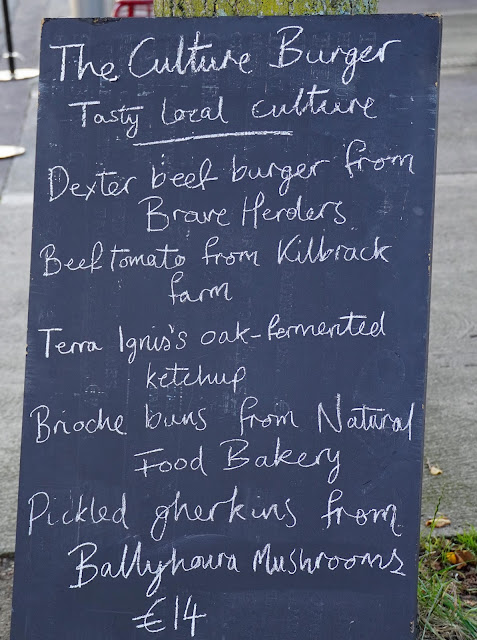 The Culture Burger
Tasty local culture
Dexter beef burger from
Brave Herders
Beef tomato from Kilbrack
farm
Terra Ignis's oak-fermented
ketchup
Brioche buns from Natural
Food Bakery
Pickled gherkins from
Ballyhoura Mushrooms
€14